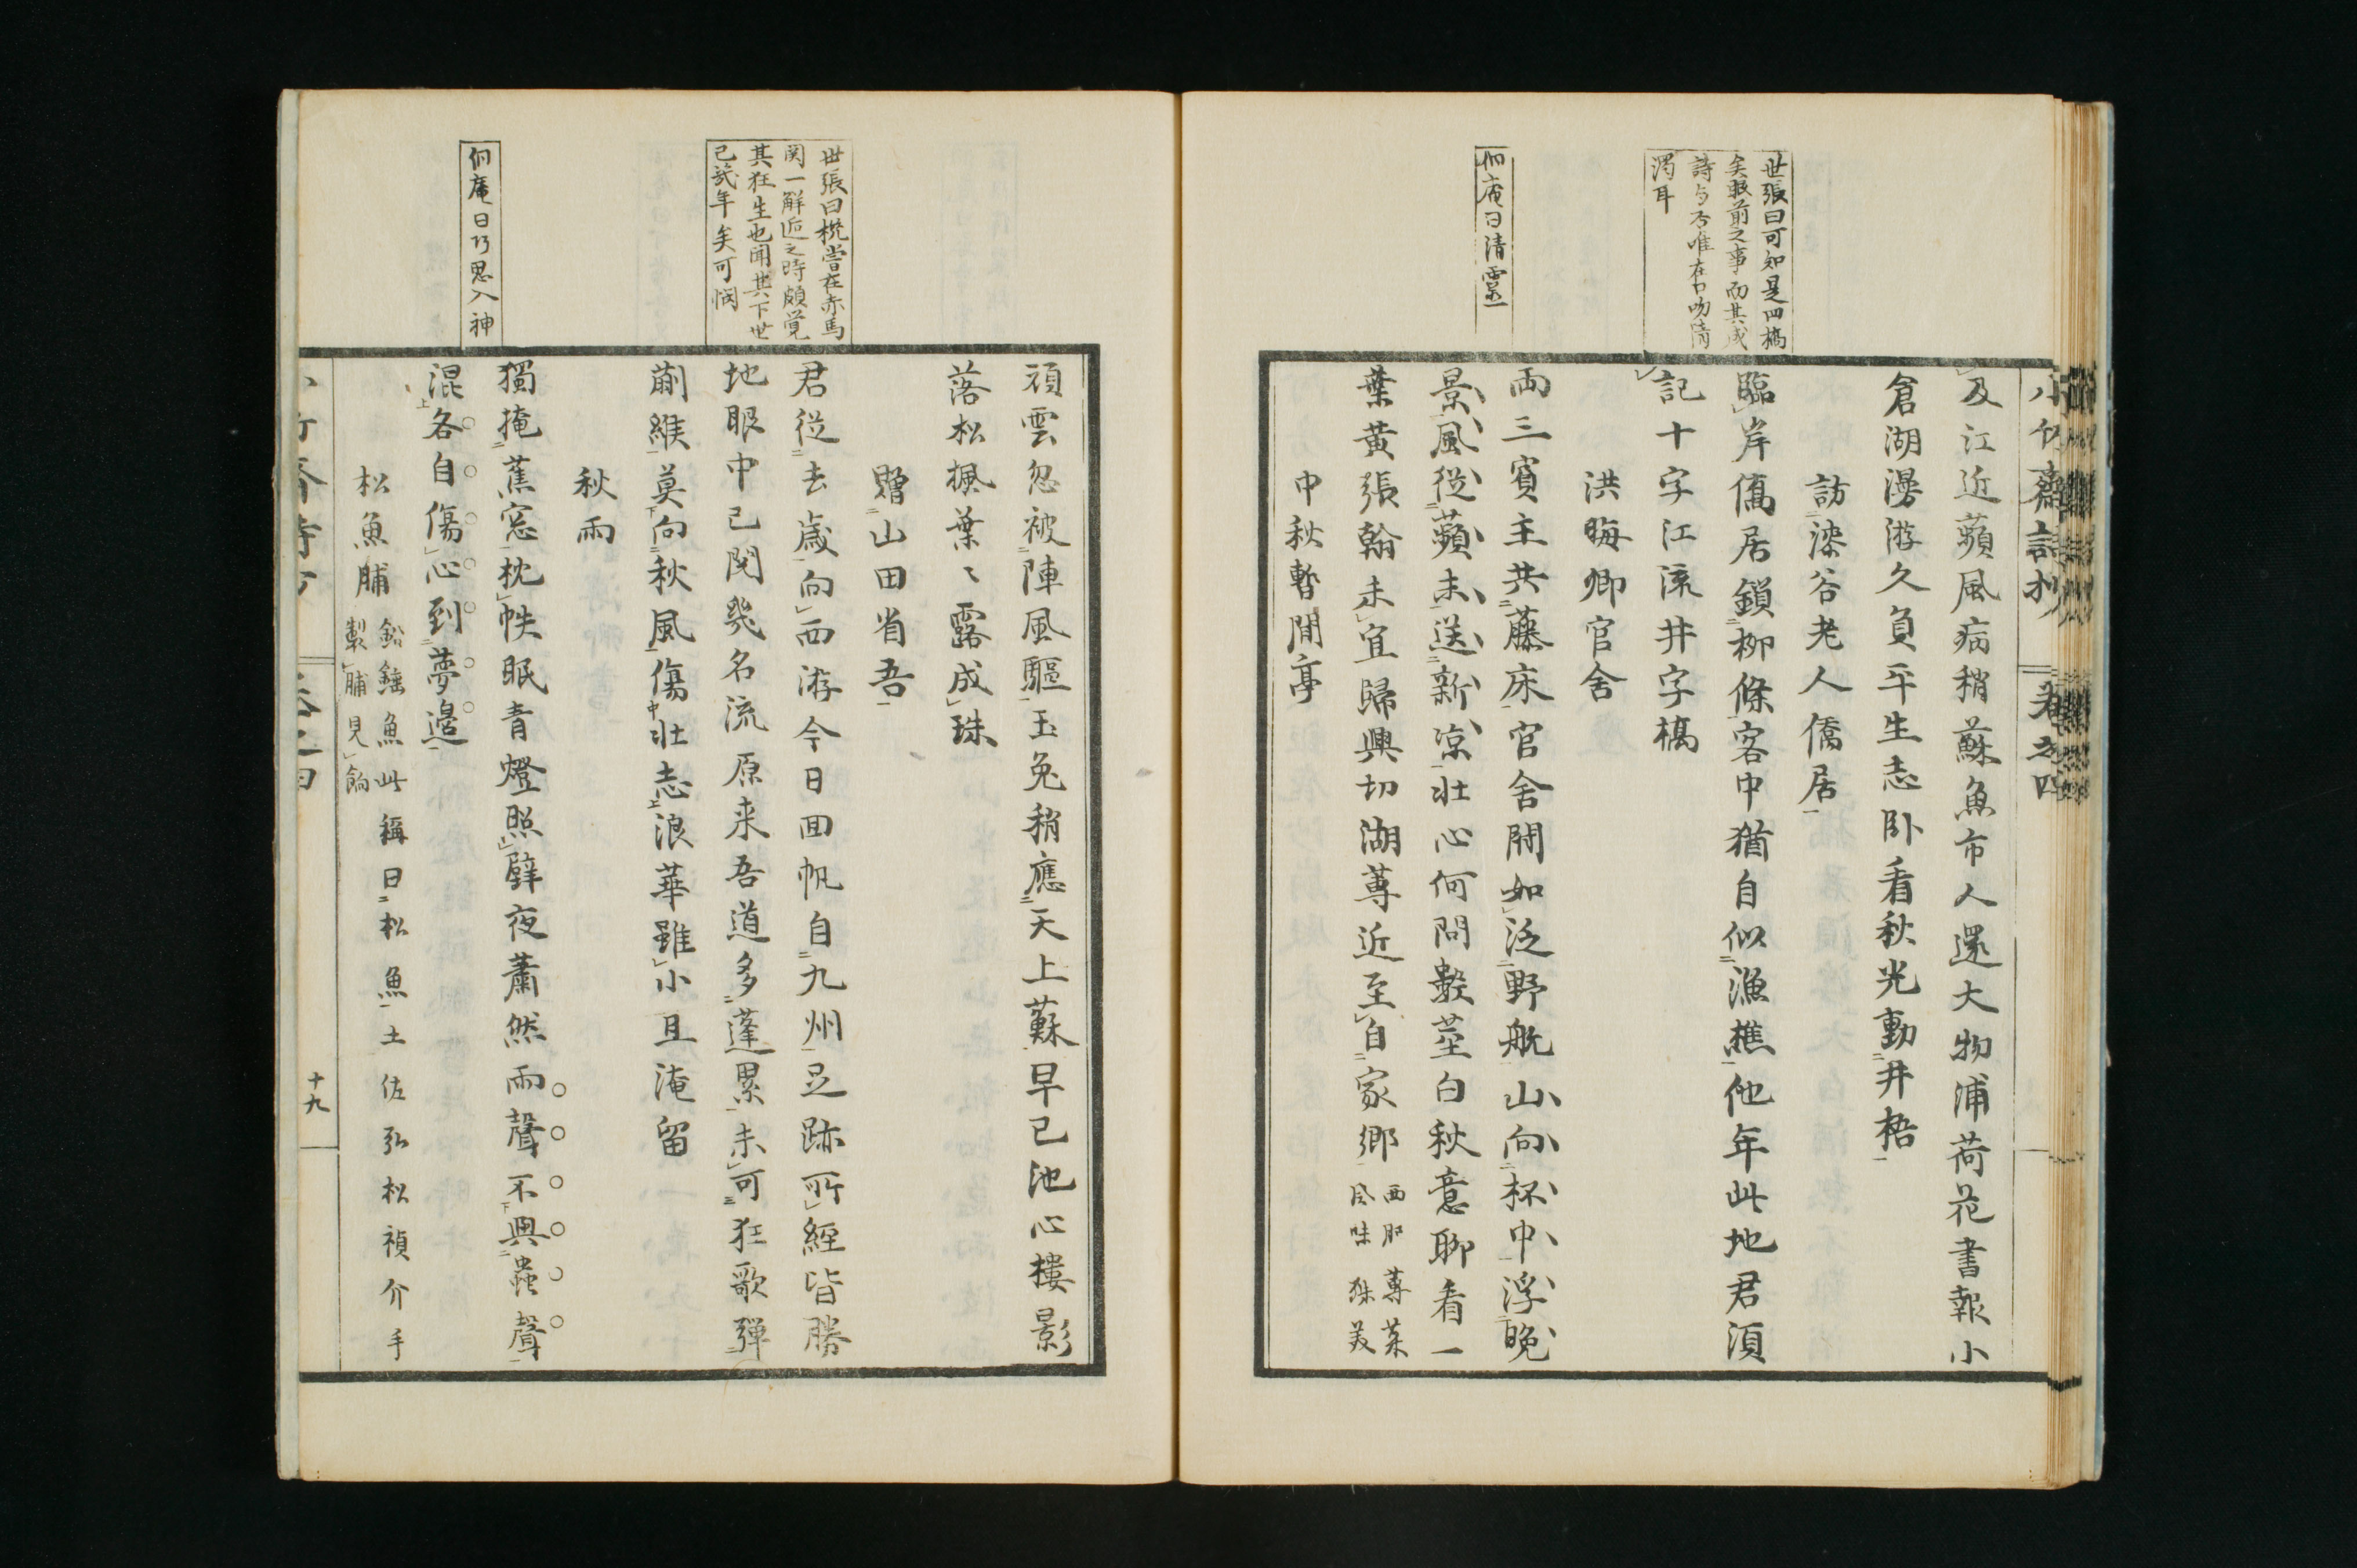 世張曰可知是四橋
矣眼前之事而其成
詩与否唯在吻清
濁耳
侗庵曰清霊
小竹齋詩抄 卷之四
及江近蘋風病稍蘇魚市人還大物浦荷花書報小
倉湖漫游久負平生志臥看秋光動井梧
訪滦谷老人僑居
臨岸僑居鎖柳條客中猶自似漁樵他年此地君須
記十字江流井字橋
洪晦卿官舍
兩三賓主共藤床官舍開如泛野航山向杯中浮晚
景風從蘋末送新凉壮心何問數莖白秋意聊看一
葉黃張翰未宜歸興切湖蓴近至自家鄉
西肥蓴菜
風味殊美
中秋暫間亭
世張曰梲嘗在赤馬
関一觧逅之時頗覚
其狂生也聞其下世
已茺年矣可憫
侗庵曰巧思入神
須雲忽被陣風驅玉兔稍應天上蘇早已池心摟影
落松楓葉〻露成珠
贈山田省吾
君從去歲向西游今日回帆自九州足跡所經皆勝
地眼中已閱幾名流原来吾道多蓬累未可狂歌弾
蒯緱莫向秋風傷壮志浪華雖小且淹留
秋雨
獨掩蕉窓枕帙眠青燈照壁夜蕭然雨聲不與蟲聲
混各自傷心到夢邊
松魚脯
鉛錘魚此稱曰松魚土佐弘松禎介手
製脯見餉
十九